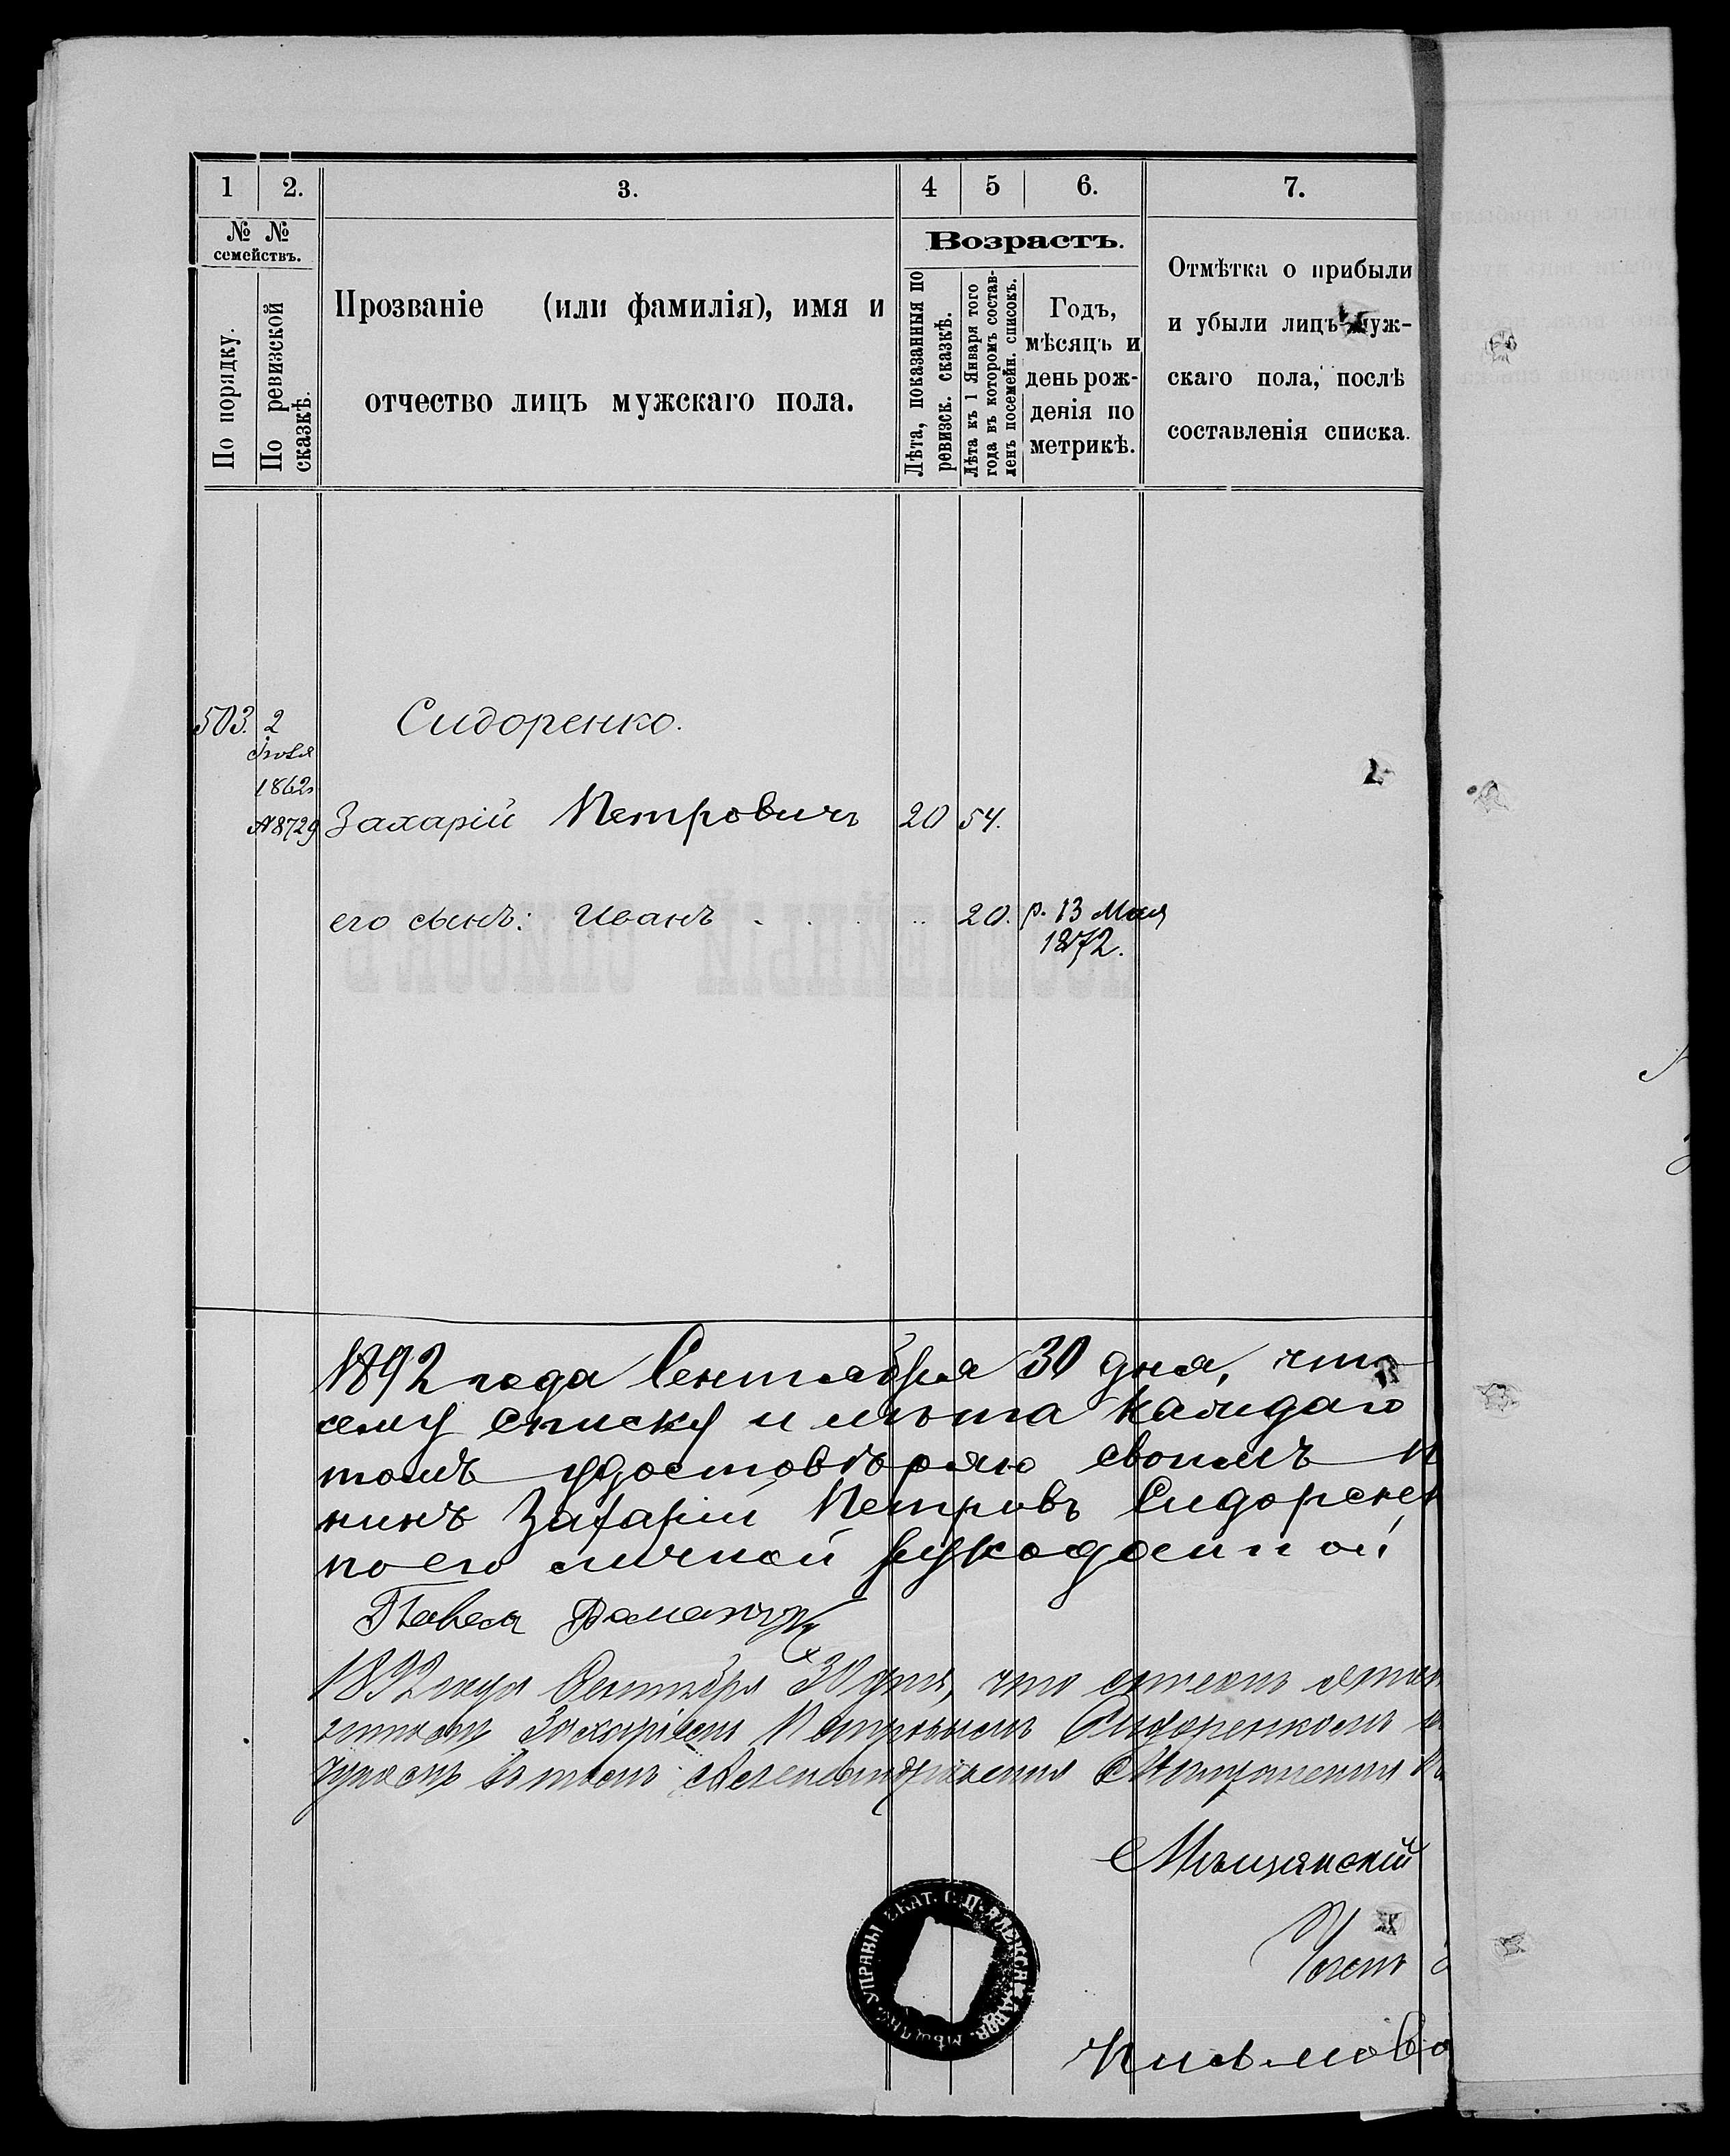 1 2. 3. 4 5 6. 7.
№ № семействъ.
По порядку.
По ревизской сказкѣ.
Прозваніе (или фамилія), имя и
отчество лицъ мужскаго пола.
Возрастъ.
Лѣта, показанныя по ревизск. сказкѣ.
Лѣта къ 1 Января того года въ которомъ составленъ посемейн. списокъ.
Годъ,
мѣсяцъ и
день рож-
денія по
метрикѣ.
Отмѣтка о прибыли
и убыли лицъ муж-
скаго пола, послѣ
составленія списка.
503. 2 Сидоренко.
Іюля
1862
№8729 Захарій Петровичъ 20 54.
его сынъ: Иванъ 20. р. 13 Мая
1872.
1892 года Сентября 30 дня, что
сему списку и лѣта каждаго
томъ удостовѣряю своимъ
нинъ Захарій Петровъ Сидорен
по его личной рукоданной
Павелъ
1892 года Сентября 30 дня, что
Захаріемъ Петровымъ Сидоренкомъ
Мѣщанскій
Член
Письмово
МѢЩАНС. УПРАВЫ ЕКАТ. Г. П. АЛЕКСАНДРОВ.